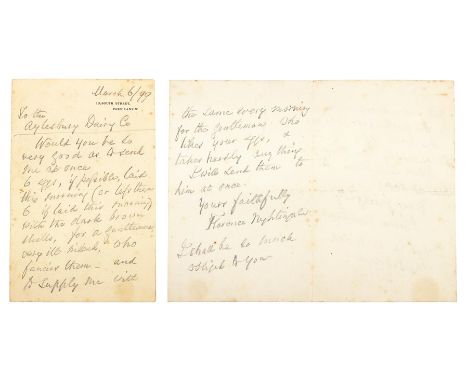 March 6/99
10, SOUTH STREET,
PARK LANE. W.
To the
Aylesbury Dairy Co
Would you be so
very good as to send
me at once
6 eggs, if possible, laid
this morning (or less than
6 if laid this morning)
with the dark brown
shells, for a gentleman
very ill indeed, who
fancies them - and
to supply me with
the same every morning
for the gentleman who
likes your eggs, &
takes hardly anything
I will send them to
him at once.
Yours faithfully
Florence Nightingale
I shall be so much
obliged to you